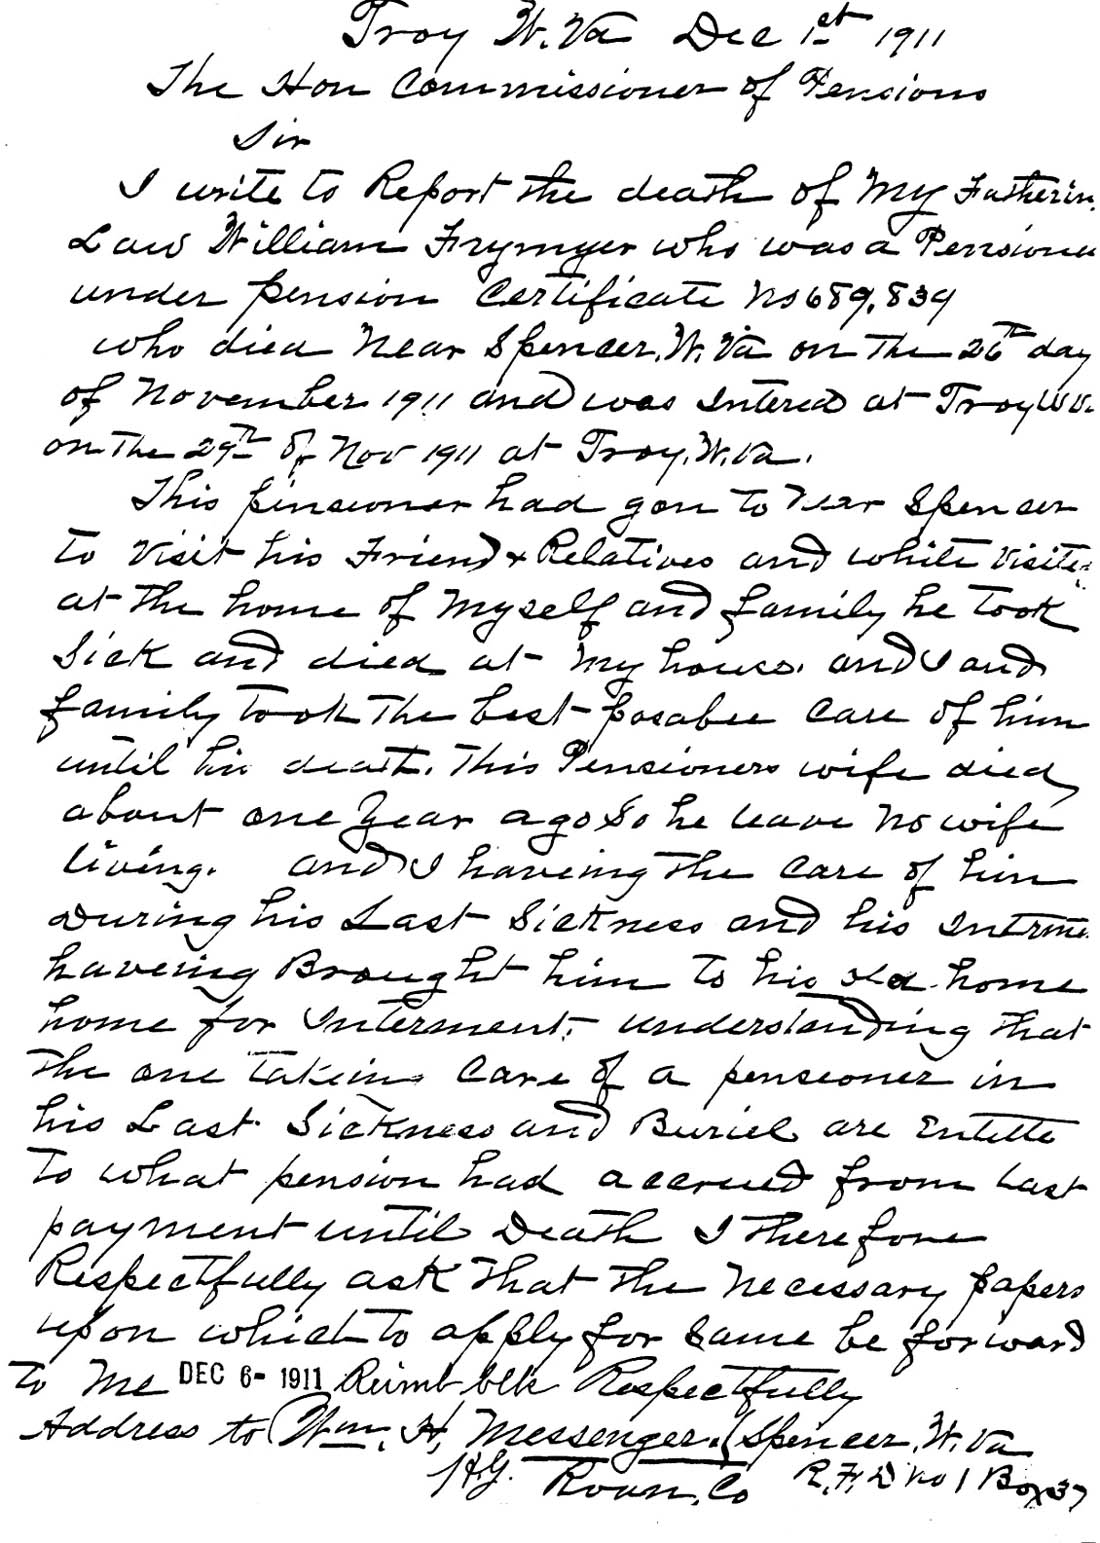 Troy W. Va Dec 1st 1911
The Hon Commissioner of Pensions
Sir
I write to Report the death of My Fatherin
Law William Frymyer who was a Pensioner
under pension Certificate No 689,839
who died Near Spencer, W. Va on the 26th day
of November 1911 and was Intered at Troy W V.
on the 29th of Nov 1911 at Troy, W. Va.
This pinsioner had gon to near Spencer
to visit his Friend & Relatives and while visite
at the home of Myself and family he took
Sick and died at my house. and I and
family took the best posabee care of him
until his death. This Pensioners wife died
about one Year ago So he leave No wife
living. and I haveing the Care of him
During his Last Sickness and his Interme
haveing Brought him to his old home
home for Interment. understanding that
the one taking Care of a penseoner in
his Last Sickness and Buriel are Entitte
To what pension had accrued from Last
payment until Death I Therefore
Respectfully ask that the Necessary papers
upon which to apply for Same be forward
to Me DEC 6- 1911 Reimb blk Respectfully
Address to Wm. H. Messenger. Spencer, W. Va
Roan, Co R.F.D No 1 Box 37